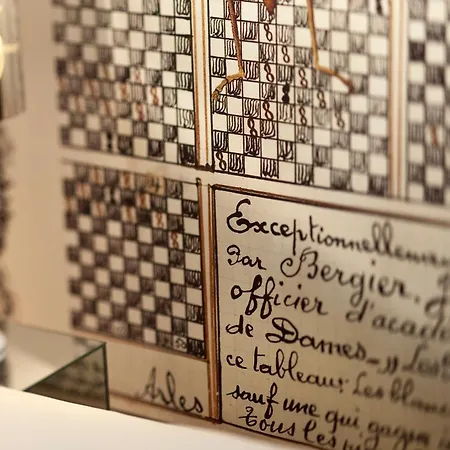 Exceptionnellement
Par Bergier,
officier d'acadé
de Dames_ „ Les
ce tableau: Les blan
sauf une qui gagne
Tous les
Arles